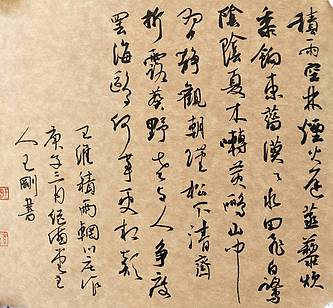 積雨空林煙火遲蒸藜炊
黍餉東菑漠漠水田飛白鷺
陰陰夏木囀黃鸝山中
習靜觀朝槿松下清齋
折露葵野老與人爭席
罷海鷗何事更相疑
王維積雨輞川庄作
庚子三月
人王剛書